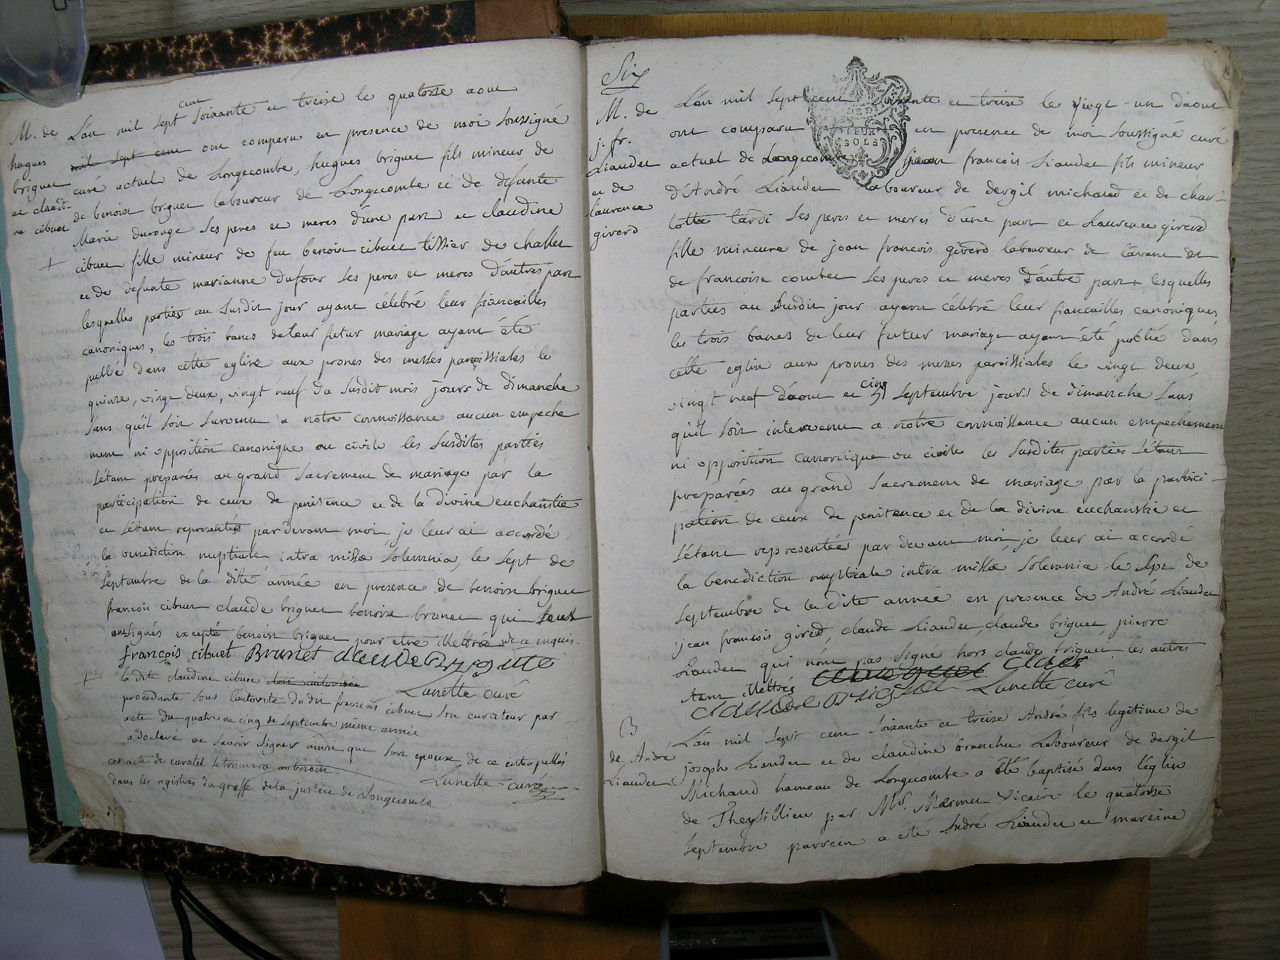 M. de
hugues
briguet
et claudi-
ne cibuet
L'an mil sept cent soixante et treize le quatorse aout
mil sept cent ont comparu en presence de moi soussigné
curé actuel de Longecombe, hugues briguet fils mineur de
de benoist briguet laboureur de Longecombe et de defunte
Marie durouge ses peres et meres d'une part et claudine
cibuet fille mineur de feu benoist cibuet tissier de challes
et de defunte marianne dufour ses peres et meres d'autres part
lesquelles parties au susdit jour ayant célébré leur fiancailles
canoniques, les trois bancs de leur futur mariage ayant été
publié dans cette eglise aux prones des messes paroissiales le
quinze, vingt deux, vingt neuf du susdit mois jours de dimanche
sans qu'il soit survenu a notre connoissance aucun empeche
ment ni opposition canonique ou civile les susdites parties
s'étant préparées au grand sacrement de mariage par la
participation de ceux de penitence et de la divine eucharistie
et s'étant representés pardevant moi je leur ai accordé
la benediction nuptiale intra missæ solemnia le sept de
septembre de la dite année en presence de benoist briguet
francois cibuet claude briguet benoist brunet qui
ont signés excepté benoist briguet pour etre illettré de ce enquis.
françois cibuet Brunet claude
la dite claudine cibuet
Lunette curé
procedante sous l'autorité du dit francois cibuet son curateur par
acte du quatre ou cinq de septembre même année
a declaré ne savoir signer ainsi que son epouse de ce interpellés
cet acte de curatel se trouvera
Lunette curé
dans les registres du greffe de la justice de Longecombe
Six
M. de
j. fr.
Liaudet
et de
laurence
girerd
L'an mil sept cent soixante et treize le vingt-un d'aout
ont comparu en presence de moi soussigné curé
actuel de Longecombe jean françois Liaudet fils mineur
d'André Liaudet laboureur de dergil michaud et de char-
lotte tardi ses peres et meres d'une part et laurence girerd
fille mineure de jean francois girerd laboureur de
de francoise combet ses peres et meres d'autre part lesquelles
parties au susdit jour ayant célébré leur fiancailles canoniques
les trois bancs de leur futur mariage ayant été publié dans
cette eglise aux prones des messes paroissiales le vingt deux,
vingt neuf d'aout et cinq septembre jours de dimanche sans
qu'il soit intervenu a notre connoissance aucun empechement
ni opposition canonique ou civile les susdites parties s'étant
preparées au grand sacrement de mariage par la partici-
pation de ceux de penitence et de la divine eucharistie et
s'étant representées par devant moi je leur ai accordé
la benediction nuptiale intra missæ solemnia le sept de
septembre de la dite année en presence de André Liaudet
jean francois girerd, claude Liaudet, claude briguet, pierre
Liaudet qui n'ont pas signé hors claude briguet les autres
étant illettrés
claude briguet Lunette curé
B
de André
Liaudet
L'an mil sept cent soixante et treize André fils legitime de
joseph Liaudet et de claudine branche laboureur de dergil
Michaud hameau de Longecombe a été baptisé dans l'église
de Theysillieu par Mr. Marmet vicaire le quatorse
septembre parrein a été André Liaudet et mareine